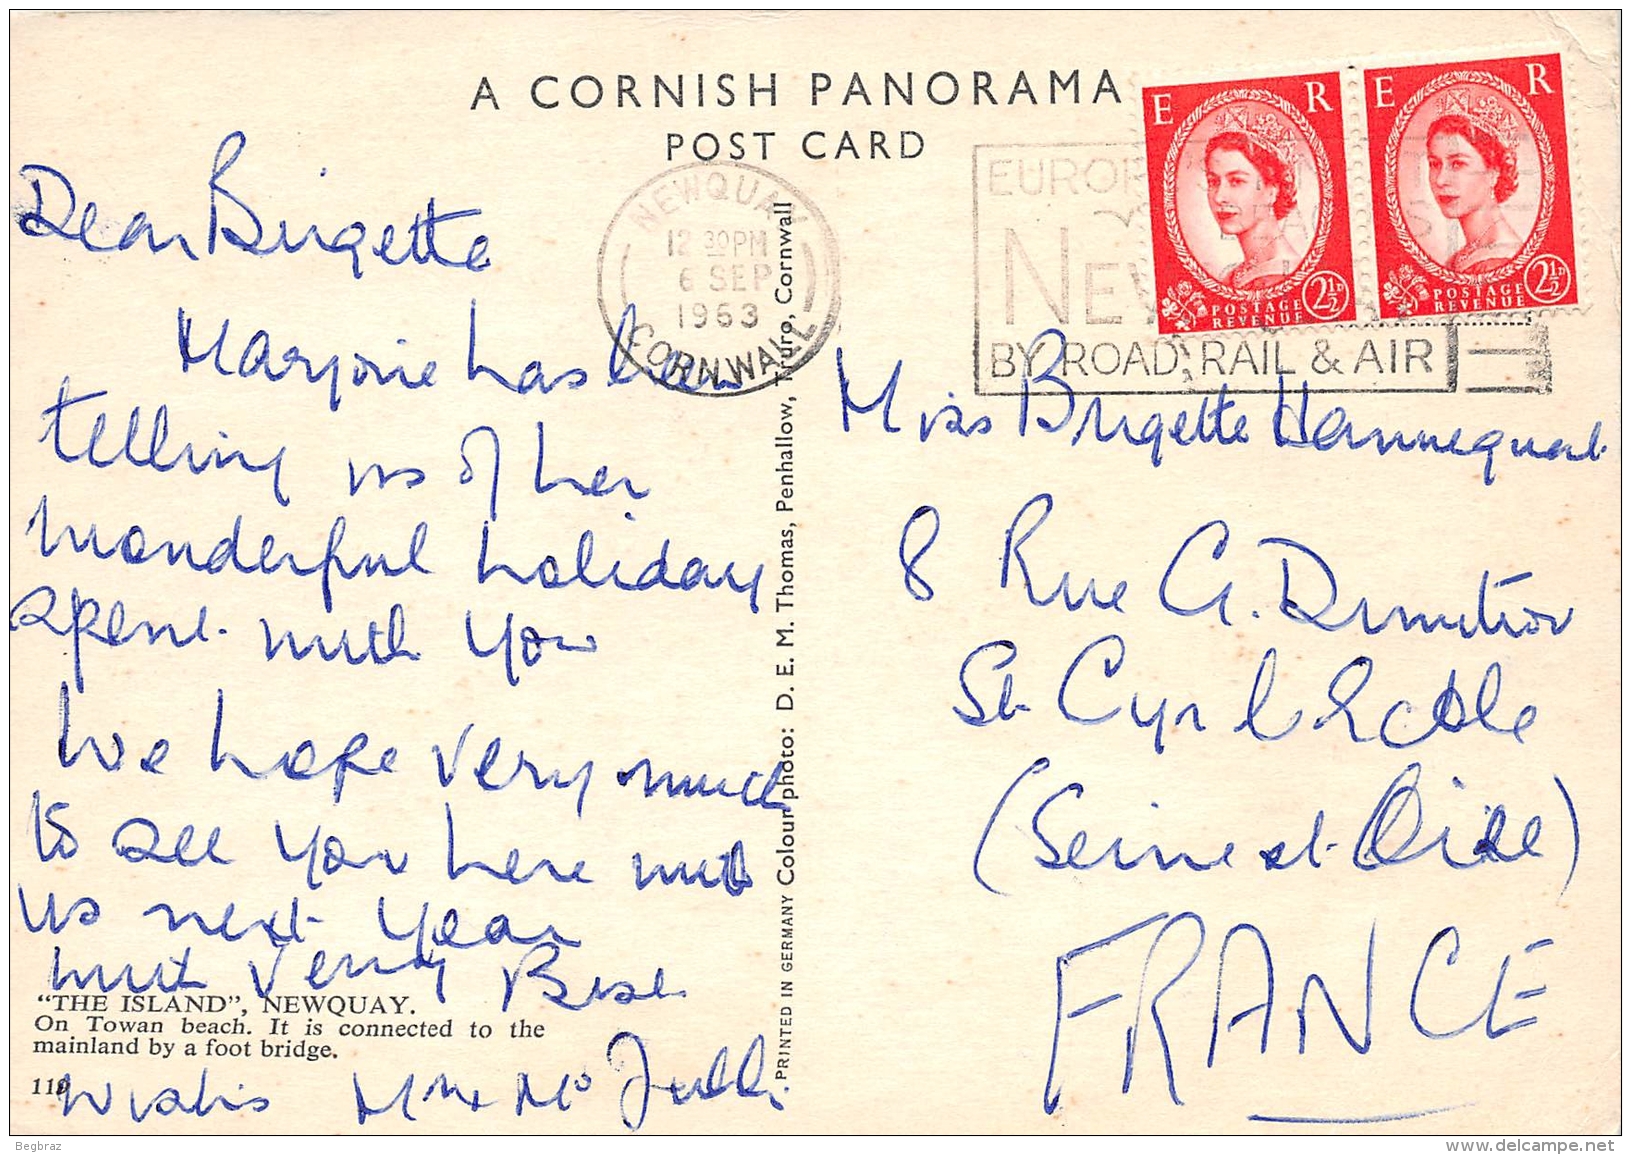 A CORNISH PANORAMA
POST CARD
E R
2½D
POSTAGE
REVENUE
E R
2½D
POSTAGE
REVENUE
NEWQUAY
12 30 PM
6 SEP
1963
CORNWALL
EUROP
NEW
BY ROAD, RAIL & AIR
Dear Brigette
Marjorie has been
telling us of her
wonderful holiday
spent with you
We hope very much
to see you here with
us next year
with very Best
Wishes Mr & Mrs
Miss Brigette Hannequart
8 Rue G. Dimitrov
St Cyr l'Ecole
(Seine et Oise)
FRANCE
"THE ISLAND", NEWQUAY.
On Towan beach. It is connected to the
mainland by a foot bridge.
PRINTED IN GERMANY Colour photo: D. E. M. Thomas, Penhallow, Truro, Cornwall
Begbraz
delcampe.net